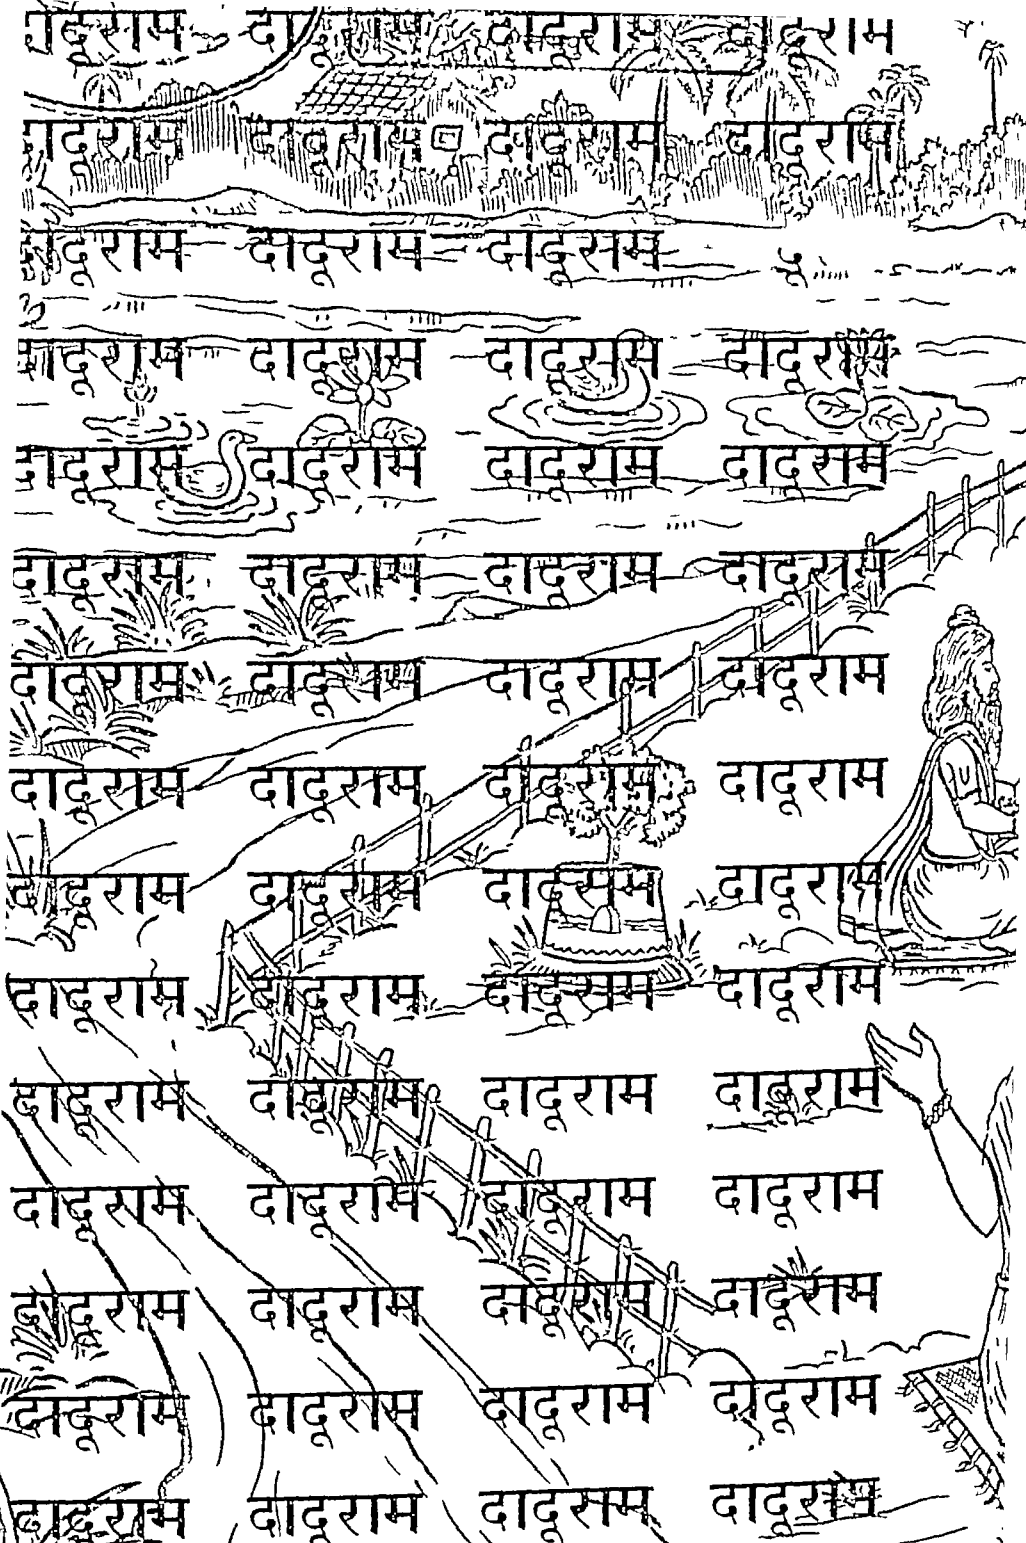 दादूराम दादूराम दादूराम दादूराम
दादूराम दादूराम दादूराम दादूराम
दादूराम दादूराम दादूराम
दादूराम दादूराम दादूराम दादूराम
दादूराम दादूराम दादूराम दादूराम
दादूराम दादूराम दादूराम दादूराम
दादूराम दादूराम दादूराम दादूराम
दादूराम दादूराम दादूराम दादूराम
दादूराम दादूराम दादूराम दादूराम
दादूराम दादूराम दादूराम दादूराम
दादूराम दादूराम दादूराम दादूराम
दादूराम दादूराम दादूराम दादूराम
दादूराम दादूराम दादूराम दादूराम
दादूराम दादूराम दादूराम दादूराम
दादूराम दादूराम दादूराम दादूराम